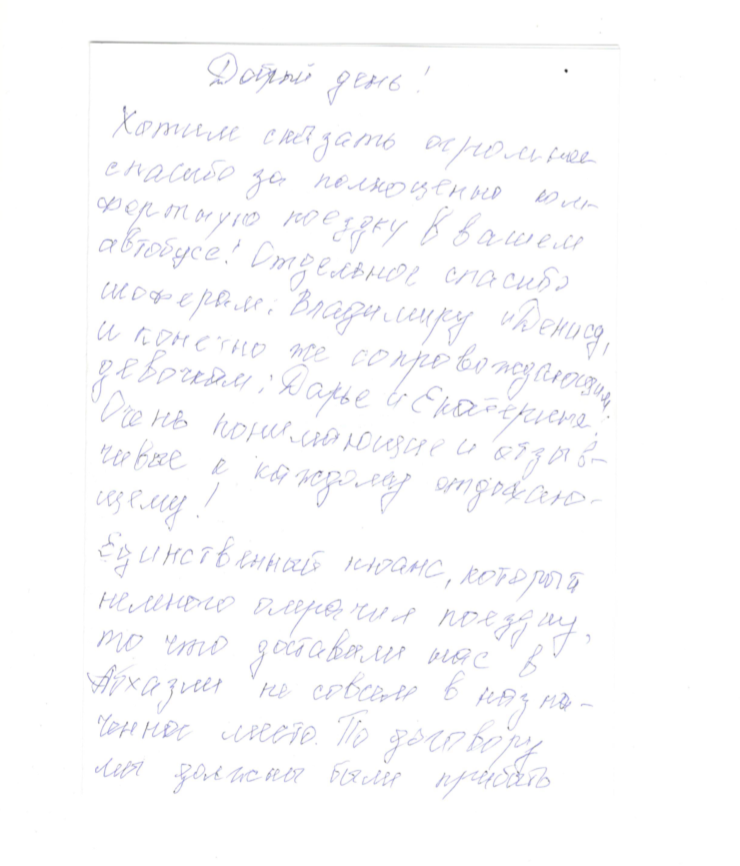 Добрый день!
Хотим сказать огромное
спасибо за полноценно ком-
фортную поездку в вашем
автобусе! Отдельное спасибо
шоферам: Владимиру и Денису,
и конечно же сопровождающим
девочкам: Дарье и Екатерине!
Очень понимающие и отзыв-
чивые к каждому отдыхаю-
щему!
Единственный нюанс, который
немного омрачил поездку,
то что доставили нас в
Абхазии не совсем в назна-
ченное место. По договору
мы должны были прибыть